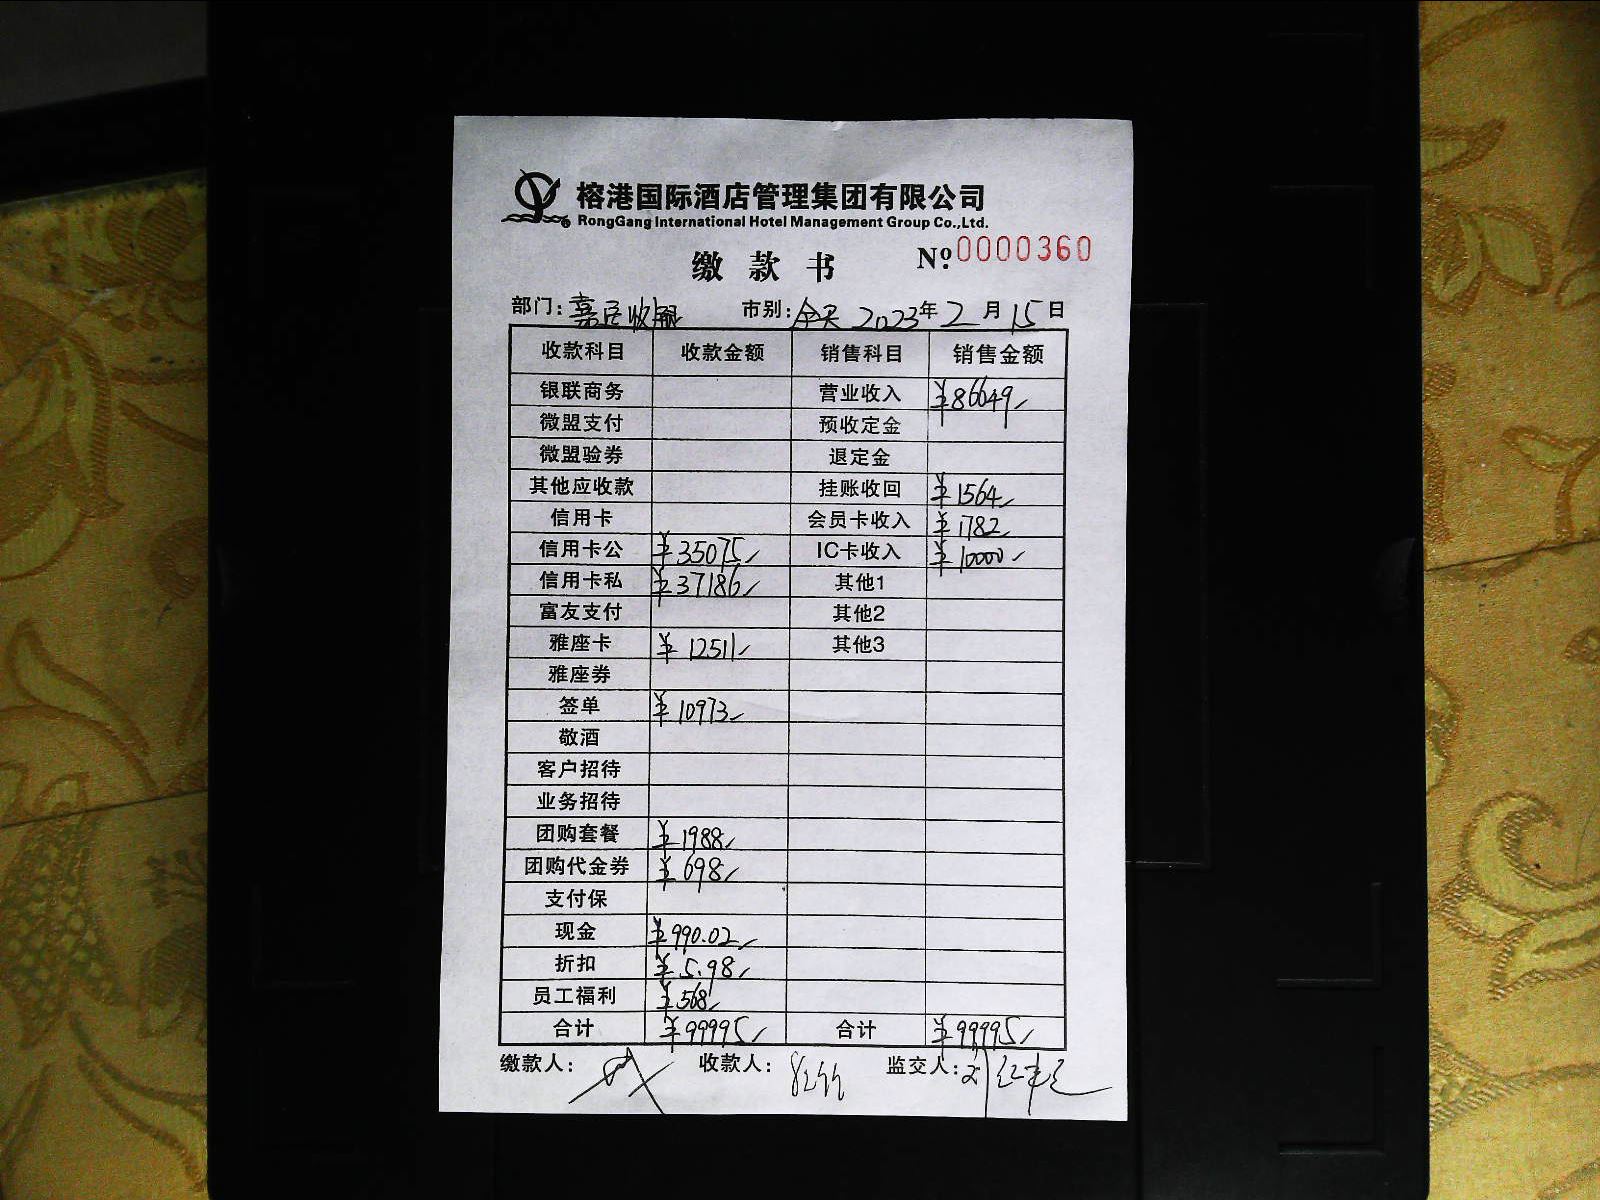 榕港国际酒店管理集团有限公司
RongGang International Hotel Management Group Co.,Ltd.
缴款书 Nº.0000360
部门: 收银 市别:全天 2023年2月15日
收款科目 收款金额 销售科目 销售金额
银联商务 营业收入 ¥86649
微盟支付 预收定金
微盟验券 退定金
其他应收款 挂账收回 ¥1564
信用卡 会员卡收入 ¥1782
信用卡公 ¥35075 IC卡收入 ¥10000
信用卡私 ¥37186 其他1
富友支付 其他2
雅座卡 ¥12511 其他3
雅座券
签单 ¥10973
敬酒
客户招待
业务招待
团购套餐 ¥1988
团购代金券 ¥698
支付保
现金 ¥990.02
折扣 ¥5.98
员工福利 ¥568
合计 ¥99995 合计 ¥99995
缴款人: 收款人: 监交人: